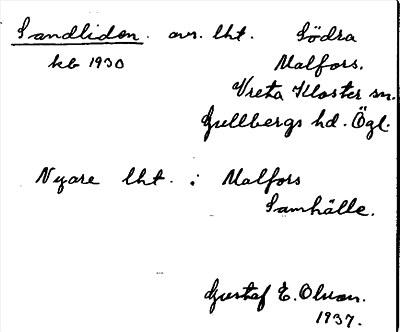 Sandliden. avs. lht. Södra
kb 1930 Malfors.
Vreta Kloster sn.
Gullbergs hd. Ögl.
Nyare lht. i Malfors
Samhälle.
Gustaf E. Olsson.
1937.